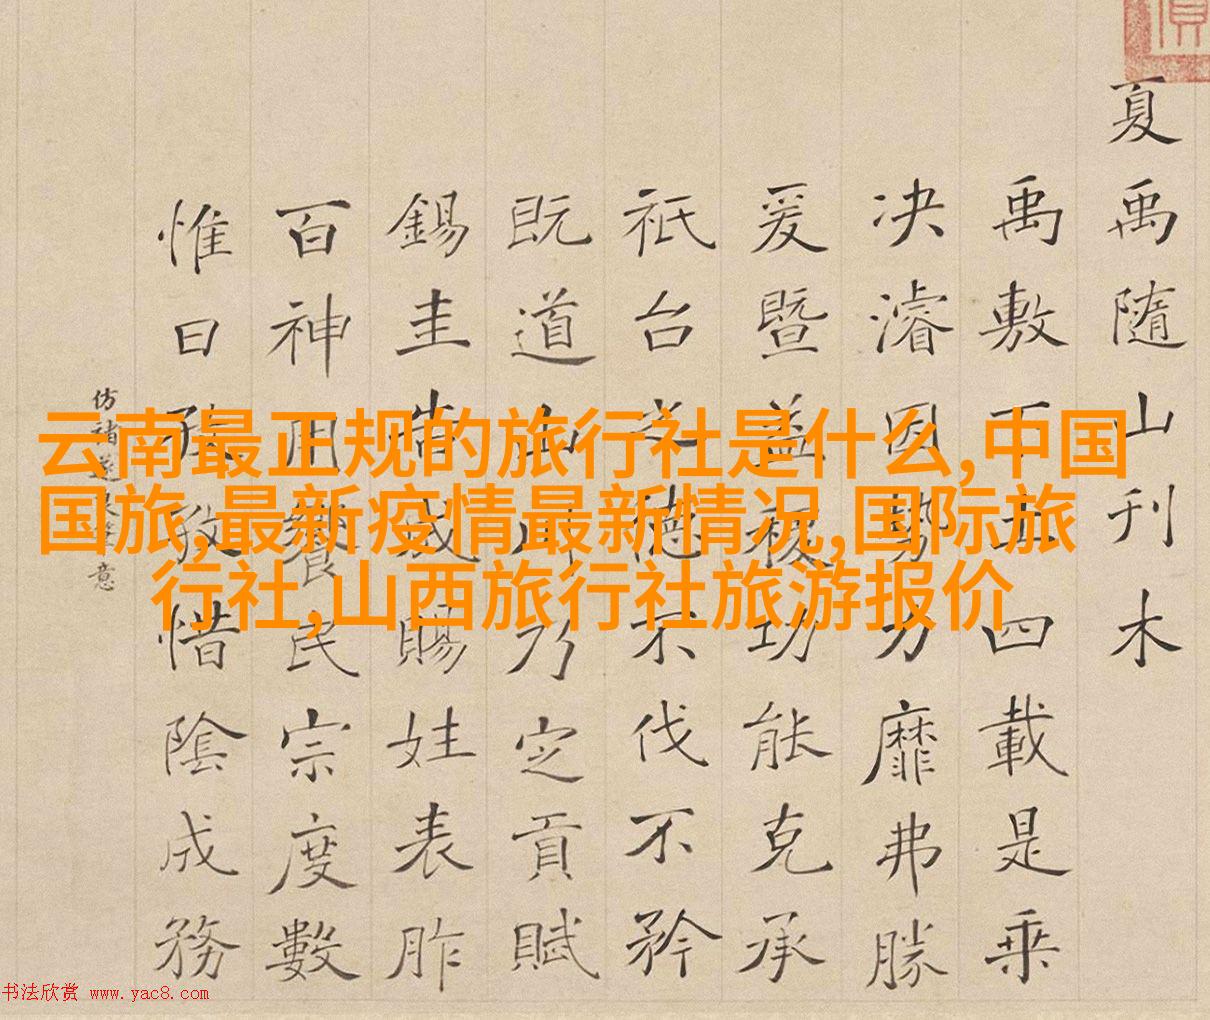 云南最正规的旅行社是什么,中国
国旅,最新疫情最新情况,国际旅
行社,山西旅行社旅游报价
夏禹隨山刊木
禹敷下土四載是乘
决濬因勢力靡弗勝
爰暨益稷功能克承
祇台德不伐不矜
既道山川乃定貢賦
錫圭告成賜姓表胙
百神用饗民宗度數
惟日孜孜惜陰成務
仿褚遂良意
书法欣赏 www.yac8.com